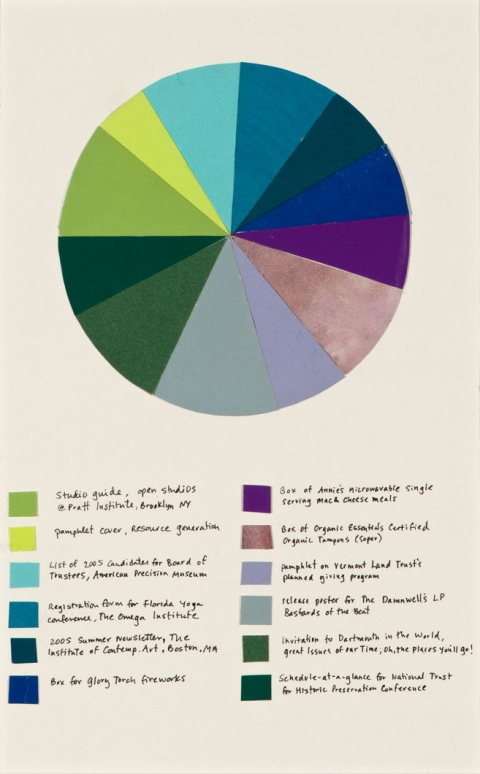 Studio guide, open studios
@ Pratt Institute, Brooklyn NY
pamphlet cover, Resource generation
List of 2005 Candidates for Board of
Trustees, American Precision Museum
Registration form for Florida Yoga
conference, The Omega Institute
2005 Summer Newsletter, The
Institute of Contemp. Art, Boston, MA
Box for Glory Torch fireworks
Box of Annie's microwavable single
serving mac & cheese meals
Box of Organic Essentials Certified
Organic Tampons (super)
pamphlet on Vermont Land Trust's
planned giving program
release poster for The Damnwell's LP
Bastards of the Beat
Invitation to Dartmouth in the World,
great Issues of our Time; Oh, the places you'll go!
Schedule-at-a-glance for National Trust
for Historic Preservation Conference